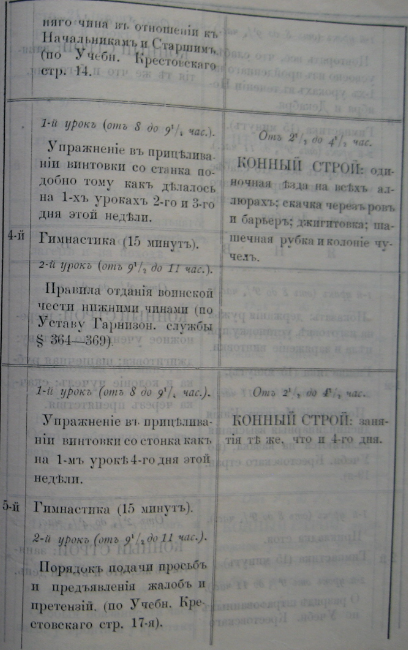 няго чина въ отношеніи къ
Начальникамъ и Старшимъ
(по Учебн. Крестовскаго
стр. 14.
1-й урокъ (отъ 8 до 9¹/₂ час.).
Упражненіе въ прицѣлива-
ніи винтовки со станка по-
добно тому какъ дѣлалось
на 1-хъ урокахъ 2-го и 3-го
дня этой недѣли.
4-й
Гимнастика (15 минутъ).
2-й урокъ (отъ 9¹/₂ до 11 час.).
Правила отданія воинской
чести нижними чинами (по
Уставу Гарнизон. службы
§ 364—369).
Отъ 2¹/₂ до 4¹/₂ час.
КОННЫЙ СТРОЙ: оди-
ночная ѣзда на всѣхъ ал-
люрахъ; скачка черезъ ровъ
и барьеръ; джигитовка; ша-
шечная рубка и колоніе чу-
челъ.
1-й урокъ (отъ 8 до 9¹/₂ час.).
Упражненіе въ прицѣлива-
ніи винтовки со стонка какъ
на 1-мъ урокѣ 4-го дня этой
недѣли.
5-й
Гимнастика (15 минутъ).
2-й урокъ (отъ 9¹/₂ до 11 час.).
Порядокъ подачи просьбъ и
предъявленія жалобъ и
претензій. (по Учебн. Кре-
стовскаго стр. 17-я).
Отъ 2¹/₂ до 4¹/₂ час.
КОННЫЙ СТРОЙ: заня-
тія тѣ же, что и 4-го дня.